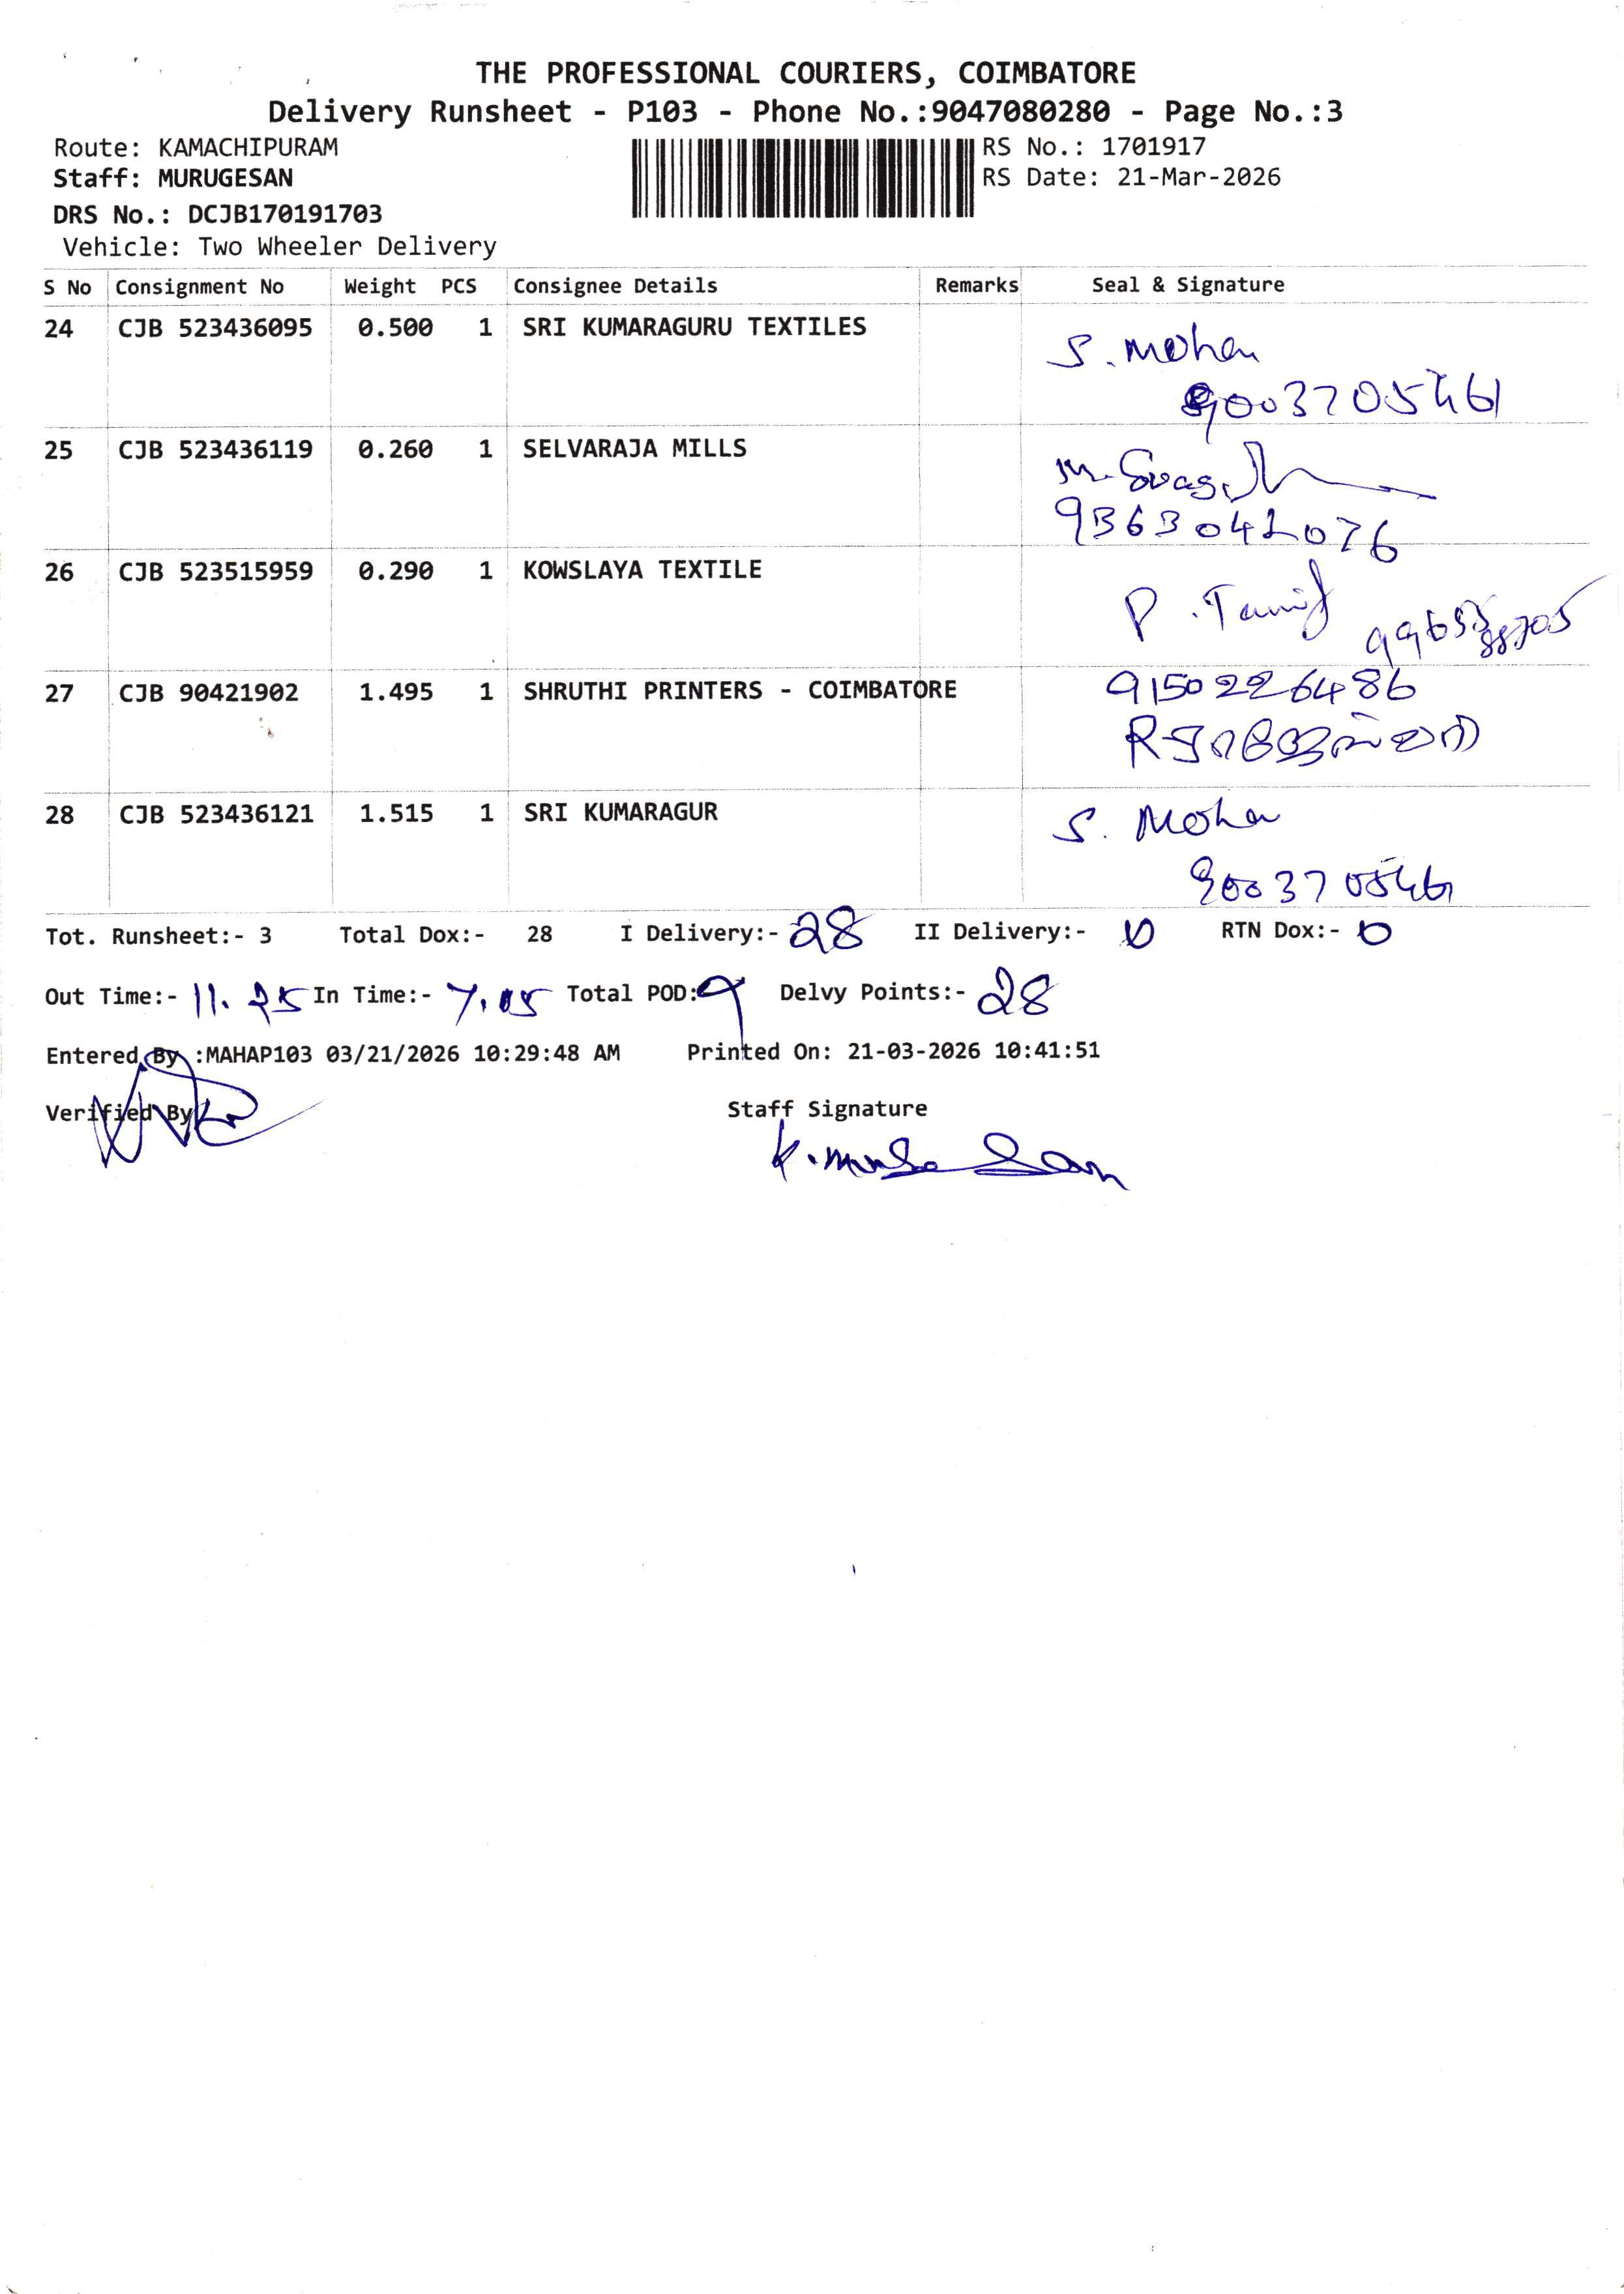 THE PROFESSIONAL COURIERS, COIMBATORE
Delivery Runsheet - P103 - Phone No.:9047080280 - Page No.:3
Route: KAMACHIPURAM
RS No.: 1701917
Staff: MURUGESAN
RS Date: 21-Mar-2026
DRS No.: DCJB170191703
Vehicle: Two Wheeler Delivery
S No Consignment No Weight PCS Consignee Details Remarks Seal & Signature
24 CJB 523436095 0.500 1 SRI KUMARAGURU TEXTILES
S. Mohan
9003705461
25 CJB 523436119 0.260 1 SELVARAJA MILLS
9363041076
26 CJB 523515959 0.290 1 KOWSLAYA TEXTILE
P. Tamil
27 CJB 90421902 1.495 1 SHRUTHI PRINTERS - COIMBATORE
9150226486
28 CJB 523436121 1.515 1 SRI KUMARAGUR
S. Mohan
9003705461
Tot. Runsheet:- 3 Total Dox:- 28 I Delivery:- 28 II Delivery:- 0 RTN Dox:- 0
Out Time:- 11.25 In Time:- 7.05 Total POD: 9 Delvy Points:- 28
Entered By :MAHAP103 03/21/2026 10:29:48 AM Printed On: 21-03-2026 10:41:51
Verified By Staff Signature